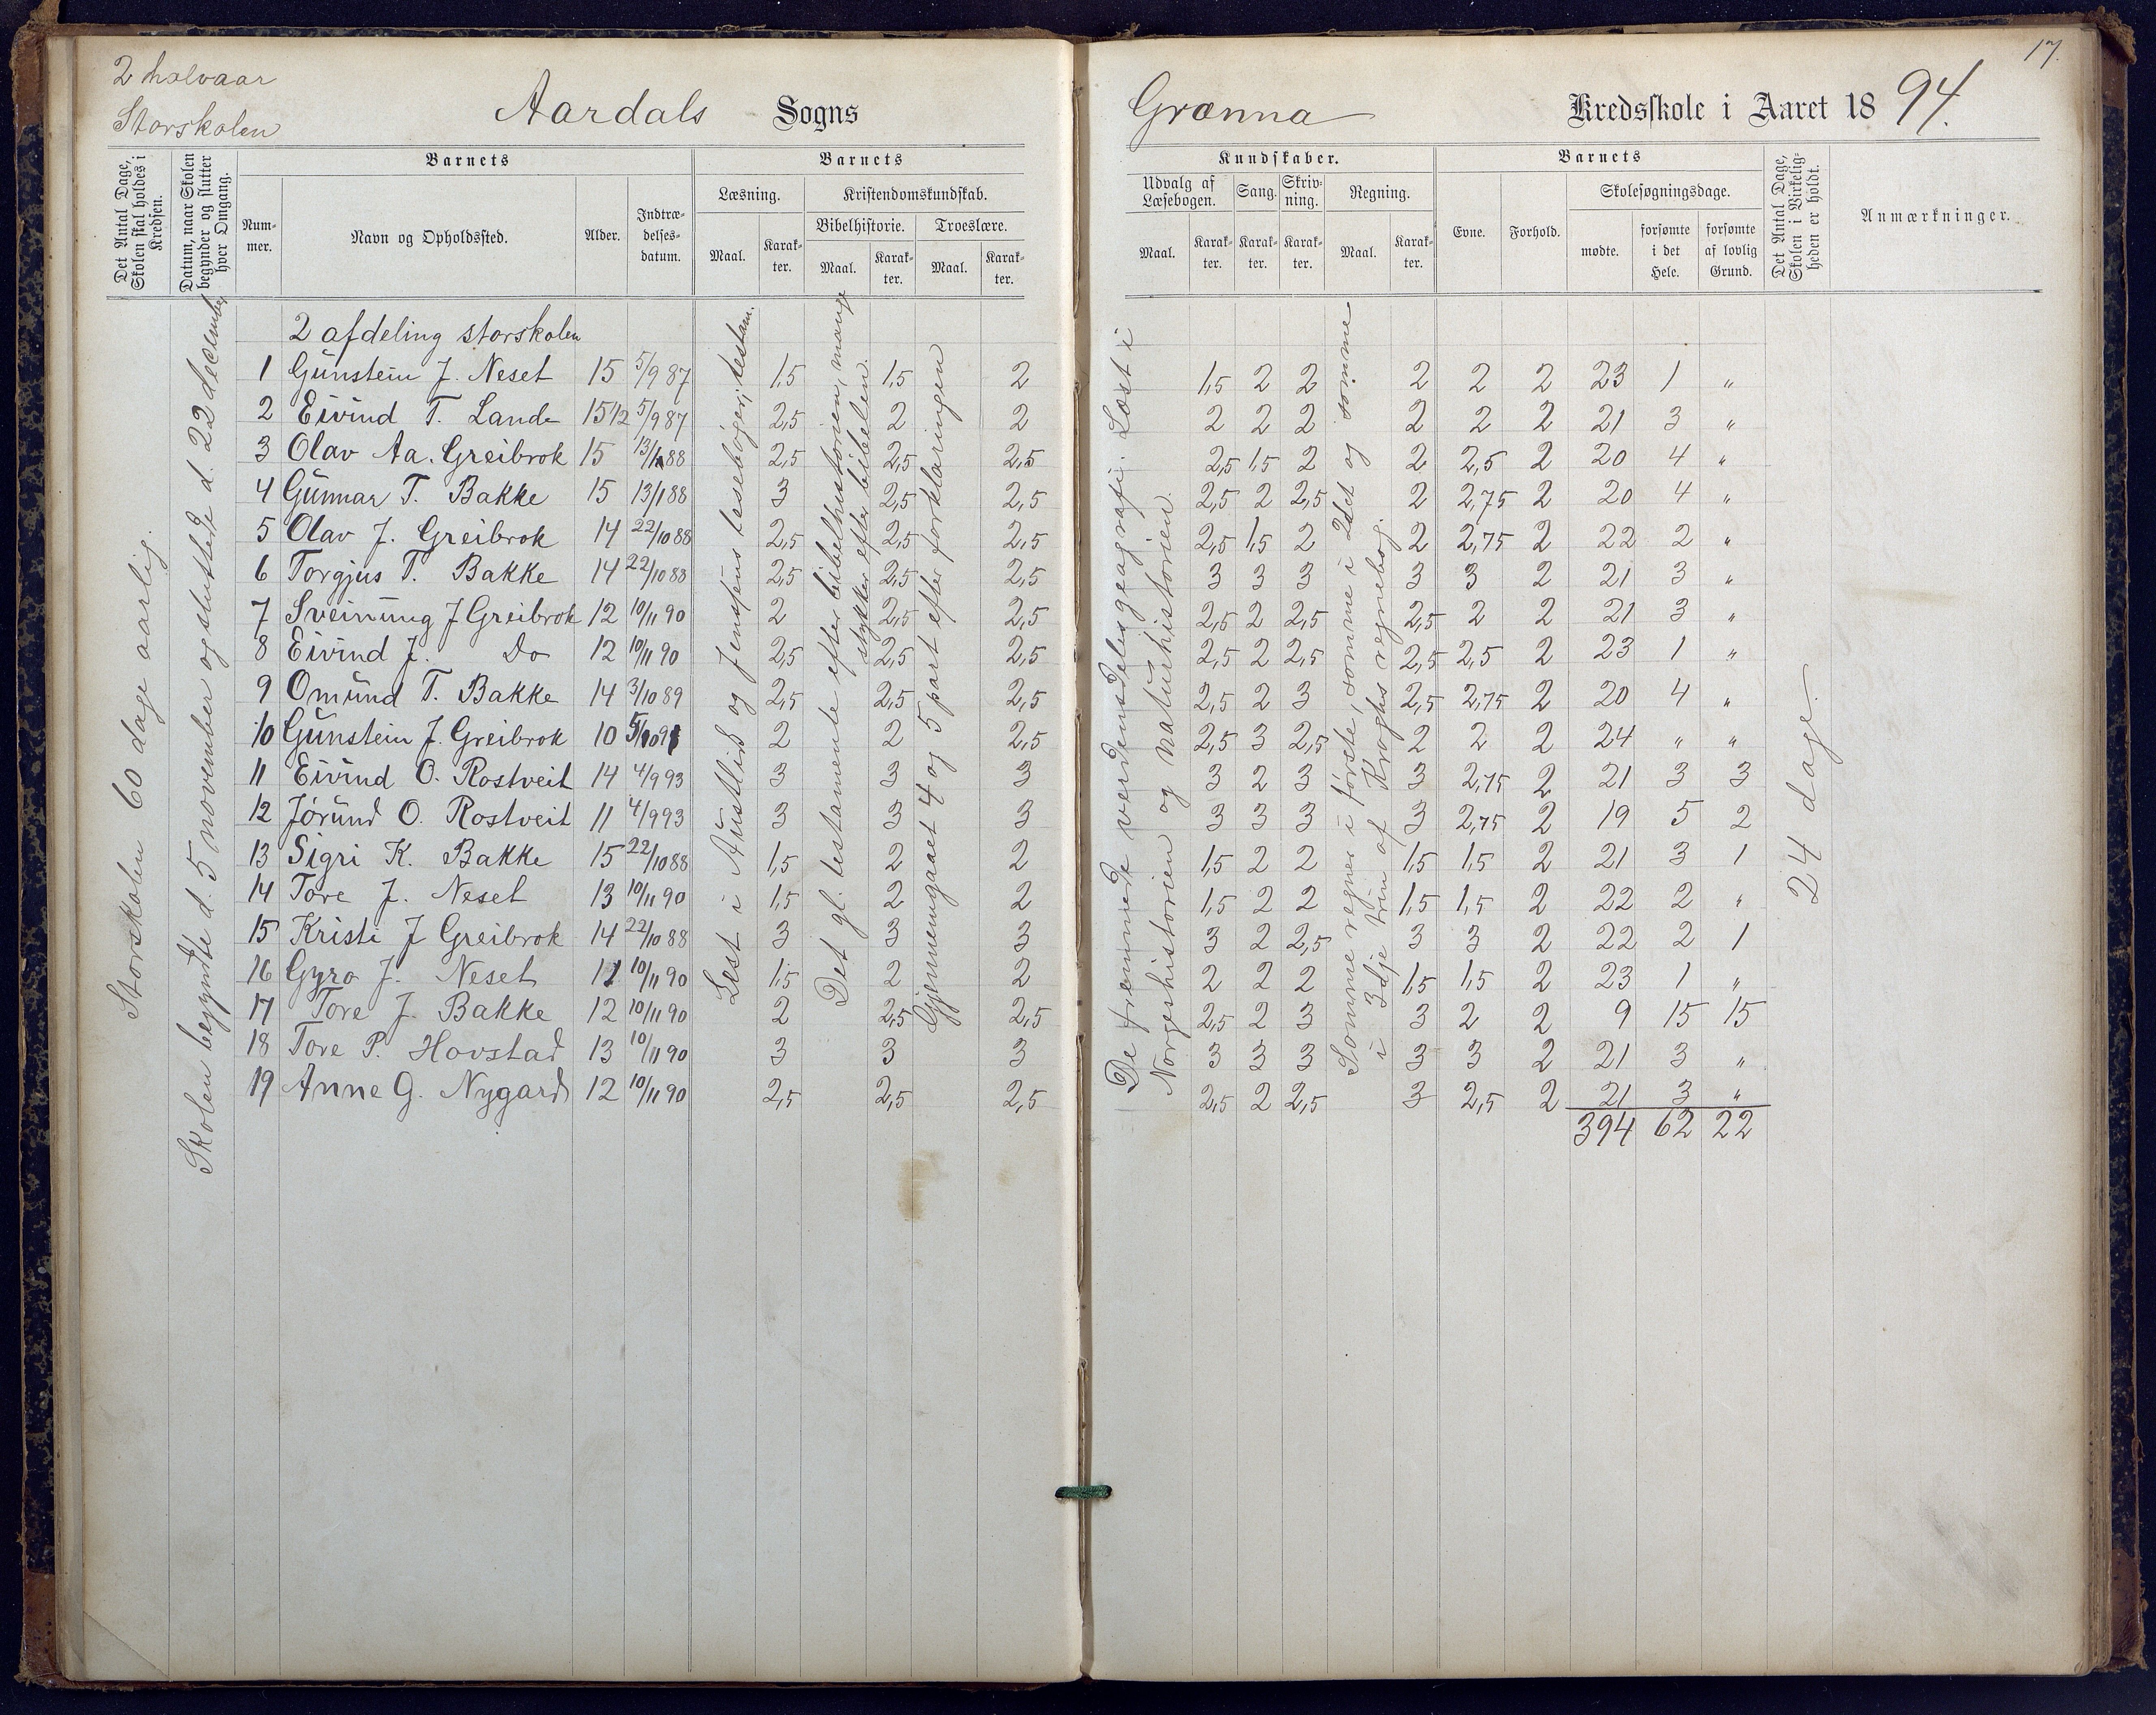 2 halvaar
Storskolen
Aardals Sogns
Det Antal Dage, Skolen skal holdes i Kredsen.
Datum, naar Skolen begynder og slutter hver Omgang.
Barnets
Nummer.
Navn og Opholdssted.
Alder.
Indtrædelsesdatum.
Barnets
Læsning.
Kristendomskundskab.
Bibelhistorie.
Troeslære.
Maal.
Karakter.
Maal.
Karakter.
Maal.
Karakter.
Storskolen 60 dage aarlig.
Skolen begynte d. 5 november og sluttede d. 22 december
2 afdeling storskolen
1 Gunstein J. Neset 15 5/9 87 1,5 1,5 2
2 Eivind T. Lande 15 1/2 5/9 87 2,5 2 2
3 Olav Aa. Greibrok 15 13/1 88 2,5 2,5 2,5
4 Gunnar T. Bakke 15 13/1 88 3 2,5 2,5
5 Olav J. Greibrok 14 22/10 88 2,5 2,5 2,5
6 Torgjus T. Bakke 14 22/10 88 2,5 2,5 2,5
7 Sveinung J Greibrok 12 10/11 90 2 2,5 2,5
8 Eivind J. Do 12 10/11 90 2,5 2,5 2,5
9 Omund T. Bakke 14 3/10 89 2,5 2,5 2,5
10 Gunstein J. Greibrok 10 2 2 2,5
11 Eivind O. Rostveit 14 4/9 93 3 3 3
12 Jorund O. Rostveit 11 4/9 93 3 3 3
13 Sigri K. Bakke 15 22/10 88 1,5 2 2
14 Tore J. Neset 13 10/11 90 1,5 2 2
15 Kristi J Greibrok 14 22/10 88 3 3 3
16 Gyro J. Neset 11 10/11 90 1,5 2 2
17 Tore J. Bakke 12 10/11 90 2 2,5 2,5
18 Tore P. Hovstad 13 10/11 90 3 3 3
19 Anne G. Nygard 12 10/11 90 2,5 2,5 2,5
Lest i Austlid og Jensens lesebøger, testam.
Det gl. testamente efter bibelhistorien, mange
stykker efter bibelen.
Gjennemgaaet 4 og 5 part efter forklaringen
17.
Grænna Kredsskole i Aaret 1894.
Kundskaber.
Udvalg af Læsebogen.
Sang.
Skrivning.
Regning.
Maal.
Karakter.
Karakter.
Karakter.
Maal.
Karakter.
Barnets
Evne.
Forhold.
Skolesøgningsdage.
mødte.
forsømte i det Hele.
forsømte af lovlig Grund.
Det Antal Dage, Skolen i Virkeligheden er holdt.
Anmærkninger.
De fremmede verdensdeles geografi. Læst i
Norgeshistorien og naturhistorien.
Somme regner i første, somme i 2det og somme
i 3dje trin af Kroghs regnebog.
1,5 2 2 2 2 2 23 1 "
2 2 2 2 2 2 21 3 "
2,5 1,5 2 2 2,5 2 20 4 "
2,5 2 2,5 2 2,75 2 20 4 "
2,5 1,5 2 2 2,75 2 22 2 "
3 3 3 3 3 2 21 3 "
2,5 2 2,5 2,5 2 2 21 3 "
2,5 2 2,5 2,5 2,5 2 23 1 "
2,5 2 3 2,5 2,75 2 20 4 "
2,5 3 2,5 2 2 2 24 " "
3 2 3 3 2,75 2 21 3 3
3 3 3 3 2,75 2 19 5 2
1,5 2 2 1,5 1,5 2 21 3 1
1,5 2 2 1,5 1,5 2 22 2 "
3 2 2,5 3 3 2 22 2 1
2 2 2 1,5 1,5 2 23 1 "
2,5 2 3 3 2 2 9 15 15
3 3 3 3 3 2 21 3 "
2,5 2 2,5 3 2,5 2 21 3 "
394 62 22
24 dage.